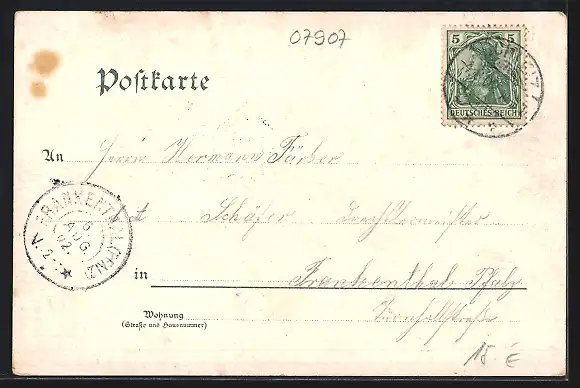 07907
5 5
DEUTSCHES REICH
Postkarte
An Herrn Hermann Färber
Schäfer Drechslermeister
FRANKENTHAL (PFALZ)
6
AUG.
02.
V. 2-
in Frankenthal Pfalz
Wohnung
(Straße und Hausnummer)
15. €